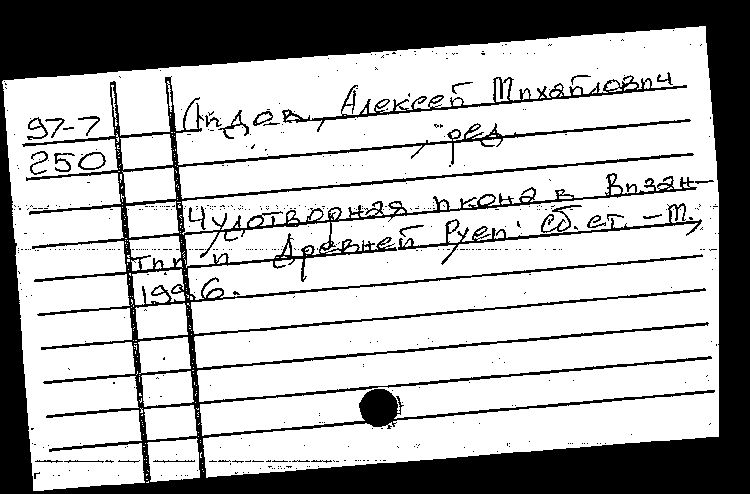 97-7
250
Лидов, Алексей Михайлович
, ред.
Чудотворная икона в Визан-
тии и Древней Руси: Сб. ст. – М.,
1996.